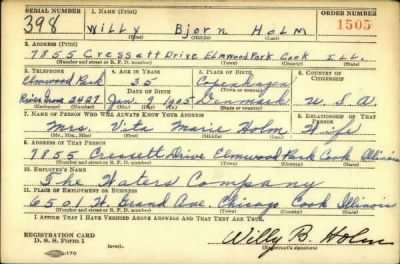 SERIAL NUMBER 1. NAME (Print) ORDER NUMBER
398 Willy Bjorn Holm 1505
(First) (Middle) (Last)
2. ADDRESS (Print)
7855 Cressett Drive Elmwood Park Cook Ill.
(Number and street or R. F. D. number) (Town) (County) (State)
3. TELEPHONE 4. AGE IN YEARS 5. PLACE OF BIRTH 6. COUNTRY OF CITIZENSHIP
Elmwood Park 35 Copenhagen
DATE OF BIRTH (Town or county)
River Grove 2487 Jan. 1905 Denmark U. S. A.
(Exchange) (Number) (Mo.) (Day) (Yr.) (State or country)
7. NAME OF PERSON WHO WILL ALWAYS KNOW YOUR ADDRESS 8. RELATIONSHIP OF THAT PERSON
Mrs. Vita Marie Holm Wife
(Mr., Mrs., Miss) (First) (Middle) (Last)
9. ADDRESS OF THAT PERSON
7855 Cressett Drive Elmwood Park Cook Illinois
(Number and street or R. F. D. number) (Town) (County) (State)
10. EMPLOYER'S NAME
The Waters Company
11. PLACE OF EMPLOYMENT OR BUSINESS
6501 W. Grand Ave. Chicago Cook Illinois
(Number and street or R. F. D. number) (Town) (County) (State)
I AFFIRM THAT I HAVE VERIFIED ABOVE ANSWERS AND THAT THEY ARE TRUE.
REGISTRATION CARD
D. S. S. Form 1 (over) Willy B. Holm
(Registrant's signature)